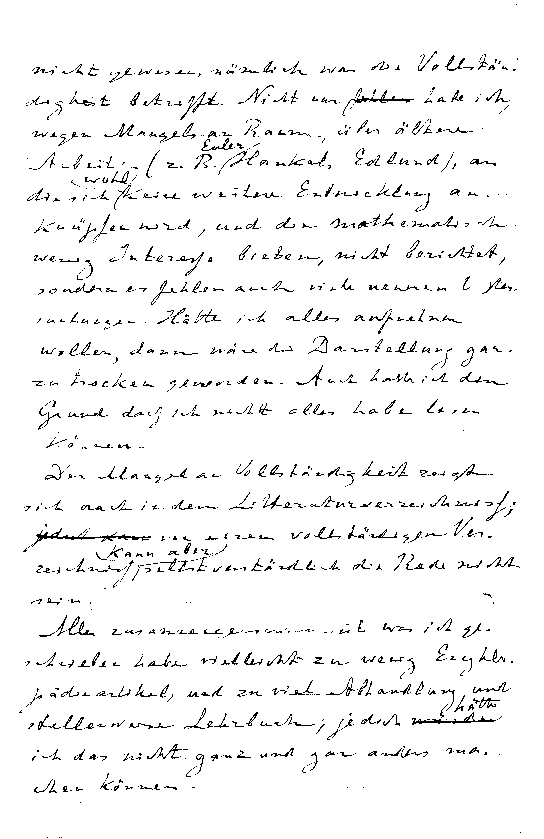 nicht gewesen, nämlich was die Vollstän-
digkeit betrifft. Nicht nur habe ich,
wegen Mangels an Raum, über ältere
Euler,
Arbeiten (z. B. Hankel, Edlund), an
wohl
die sich keine weitere Entwicklung an-
knüpfen wird, und die mathematisch
wenig Interesse bieten, nicht berichtet,
sondern es fehlen auch viele neueren Unter-
suchungen. Hätte ich alles aufnehmen
wollen, dann wäre die Darstellung gar
zu trocken geworden. Auch hatte ich den
Grund dass ich nicht alles habe lesen
können.
Der Mangel an Vollständigkeit zeigt
sich auch in dem Litteraturverzeichniss;
jedoch kann von einem vollständigen Ver-
kann aber
zeichniss selbstverständlich die Rede nicht
sein.
Alles zusammengenommen ist was ich ge-
schrieben habe vielleicht zu wenig Encyklo-
pädieartikel, und zu viel Abhandlung und
hätte
stellenweise Lehrbuch; jedoch würde
ich das nicht ganz und gar anders ma-
chen können.